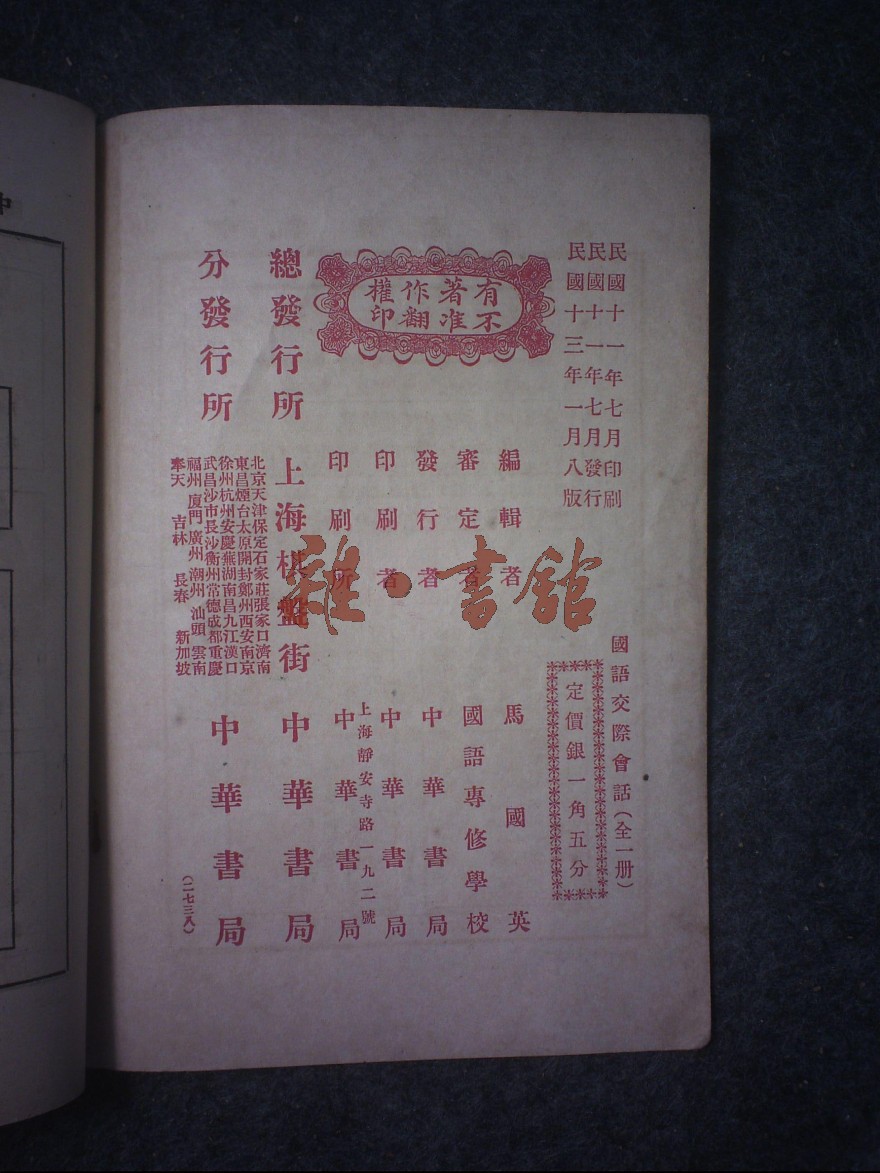 民國十一年七月印刷
民國十一年七月發行
民國十三年一月八版
國語交際會話（全一册）
定價銀一角五分
有著作權
不准翻印
編輯者 馬國英
審定者 國語專修學校
發行者 中華書局
印刷者 中華書局
上海靜安寺路一九二號
印刷所 中華書局
總發行所 上海棋盤街 中華書局
分發行所
北京天津保定石家莊張家口濟南
東昌煙台太原開封鄭州西安南京
徐州杭州安慶蕪湖南昌九江漢口
武昌沙市長沙衡州常德成都重慶
福州廈門廣州潮州汕頭雲南
奉天 吉林 長春 新加坡
中華書局
（二七三八）
雜·書館
中